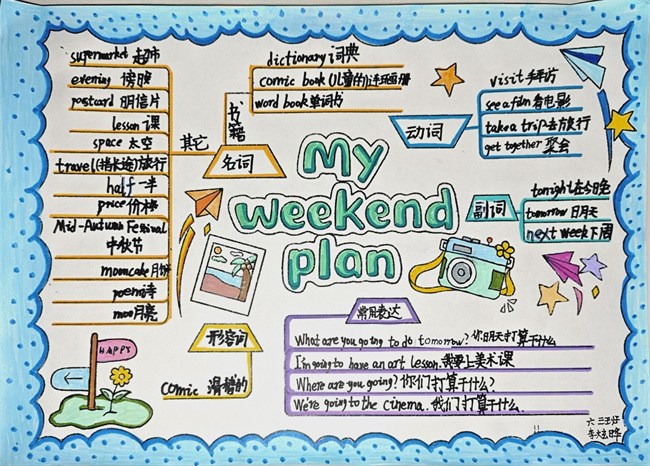 My
weekend
plan
名词
其它
supermarket 超市
evening 傍晚
postcard 明信片
lesson 课
space 太空
travel(指长途)旅行
half 一半
price 价格
Mid-Autumn Festival
中秋节
mooncake 月饼
poem 诗
moo 月亮
书籍
dictionary 词典
comic book (儿童的)连环画册
word book 单词书
动词
visit 拜访
see a film 看电影
take a trip 去旅行
get together 聚会
副词
tonight 在今晚
tomorrow 明天
next week 下周
形容词
comic 滑稽的
常用表达
What are you going to do tomorrow? 你明天打算干什么
I'm going to have an art lesson. 我要上美术课
Where are you going? 你们打算干什么?
We're going to the cinema. 我们打算干什么.
HAPPY